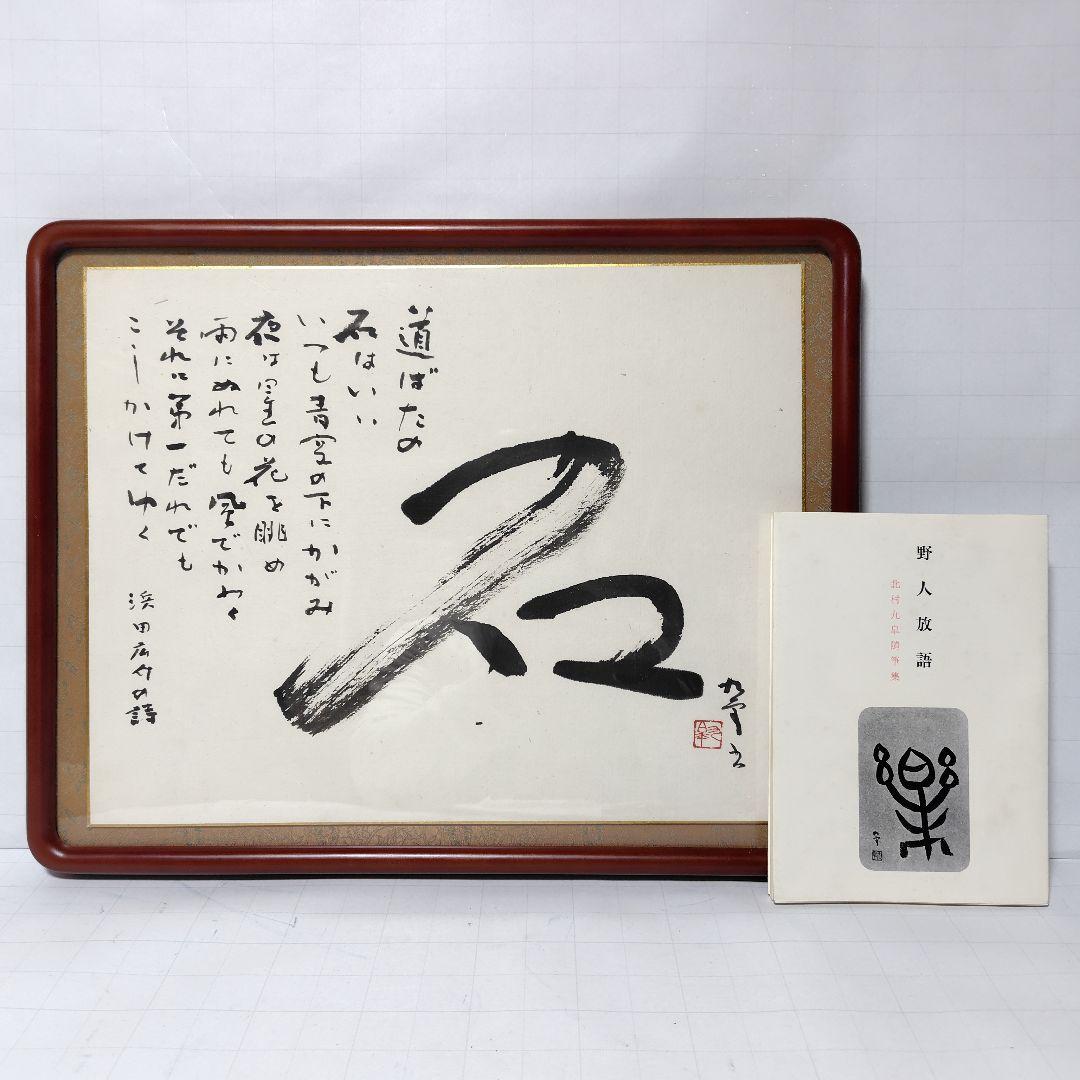 道ばたの
石はいい
いつも青空の下にかがみ
夜は星の花を眺め
雨にぬれても風でかわく
それに第一だれでも
こしかけてゆく
浜田広介の詩
石
九皐書
野人放語
北村九皐随筆集
樂
九皐